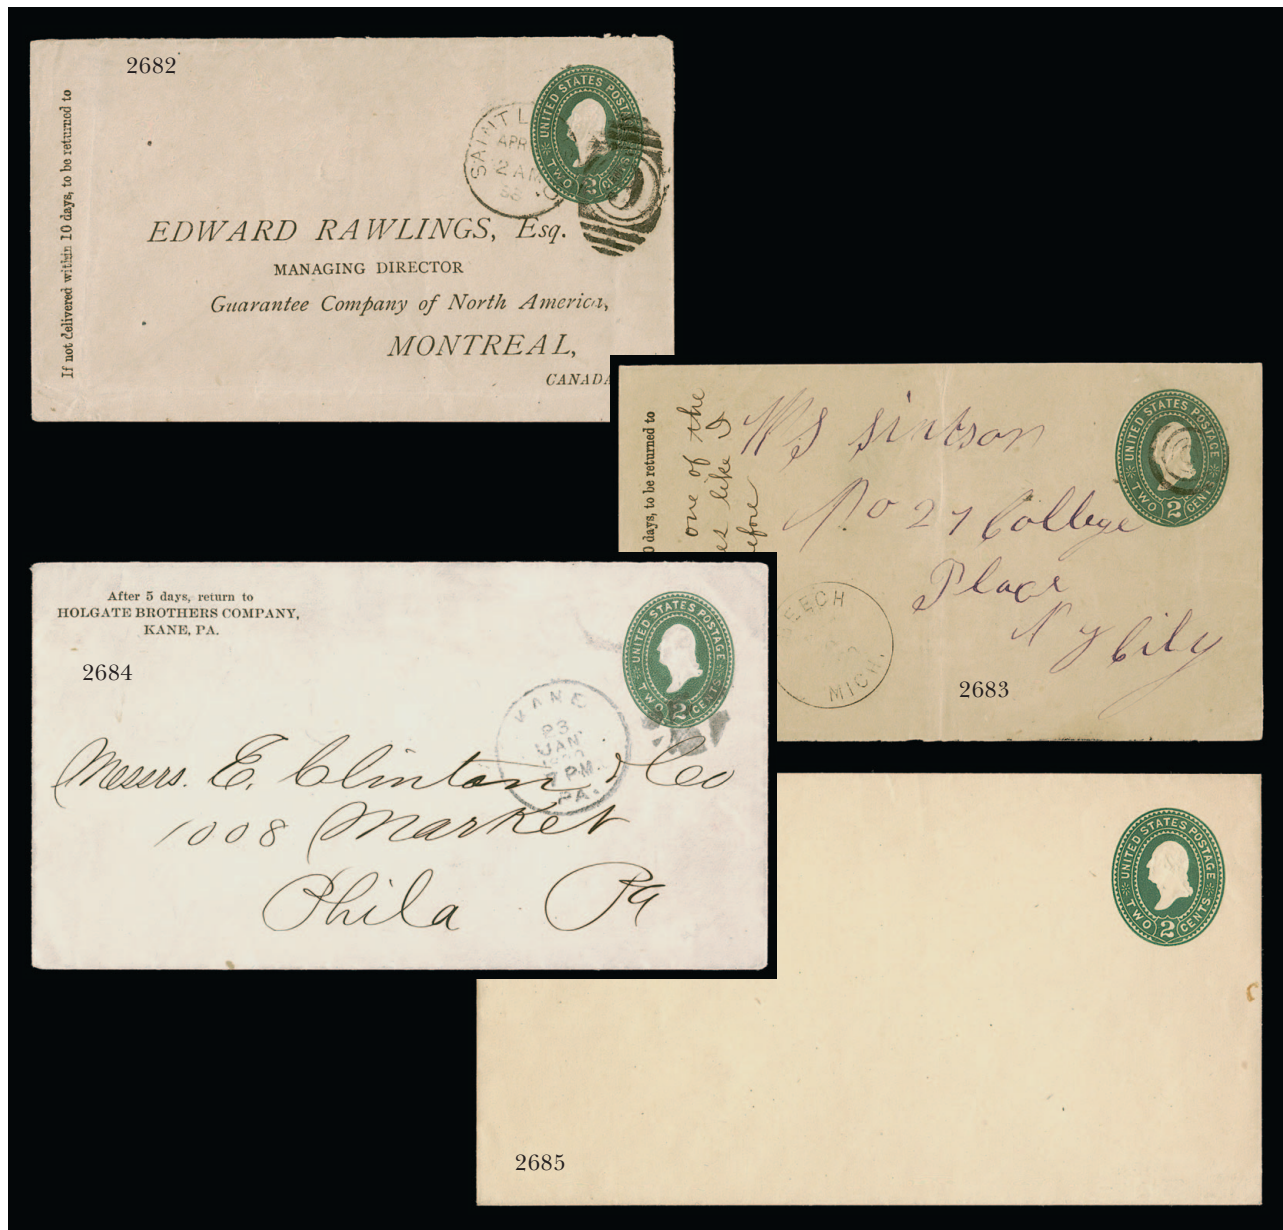 2682
If not delivered within 10 days, to be returned to
UNITED STATES POSTAGE
TWO 2 CENTS
SAINT L
APR
2 AM
88
EDWARD RAWLINGS, Esq.
MANAGING DIRECTOR
Guarantee Company of North America,
MONTREAL,
CANADA
0 days, to be returned to
one of the
es like I
before
W S
No 27 College
Place
N Y City
UNITED STATES POSTAGE
TWO 2 CENTS
BEECH
MICH.
2683
After 5 days, return to
HOLGATE BROTHERS COMPANY,
KANE, PA.
2684
UNITED STATES POSTAGE
TWO 2 CENTS
KANE
23
JAN
7 PM
PA.
Messrs. E. Clinton & Co
1008 Market
Phila Pa
UNITED STATES POSTAGE
TWO 2 CENTS
2685